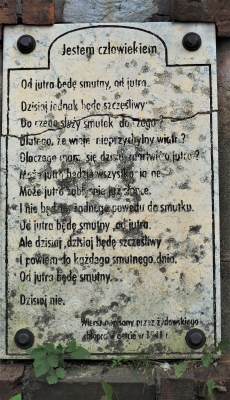 Jestem człowiekiem
Od jutra będę smutny, od jutra.
Dzisiaj jednak będę szczęśliwy
Do czego służy smutek do czego?
Dlatego, że wieje nieprzychylny wiatr?
Dlaczego mam się dzisiaj martwić o jutro?
Może jutro będzie wszystko
Może jutro już słońce.
I nie będzie żadnego powodu do smutku.
Od jutra będę smutny, od jutra.
Ale dzisiaj, dzisiaj będę szczęśliwy
I powiem do każdego smutnego dnia.
Od jutra będę smutny...
Dzisiaj nie.
Wiersz napisany przez żydowskiego
chłopca w getcie w 1941 r.